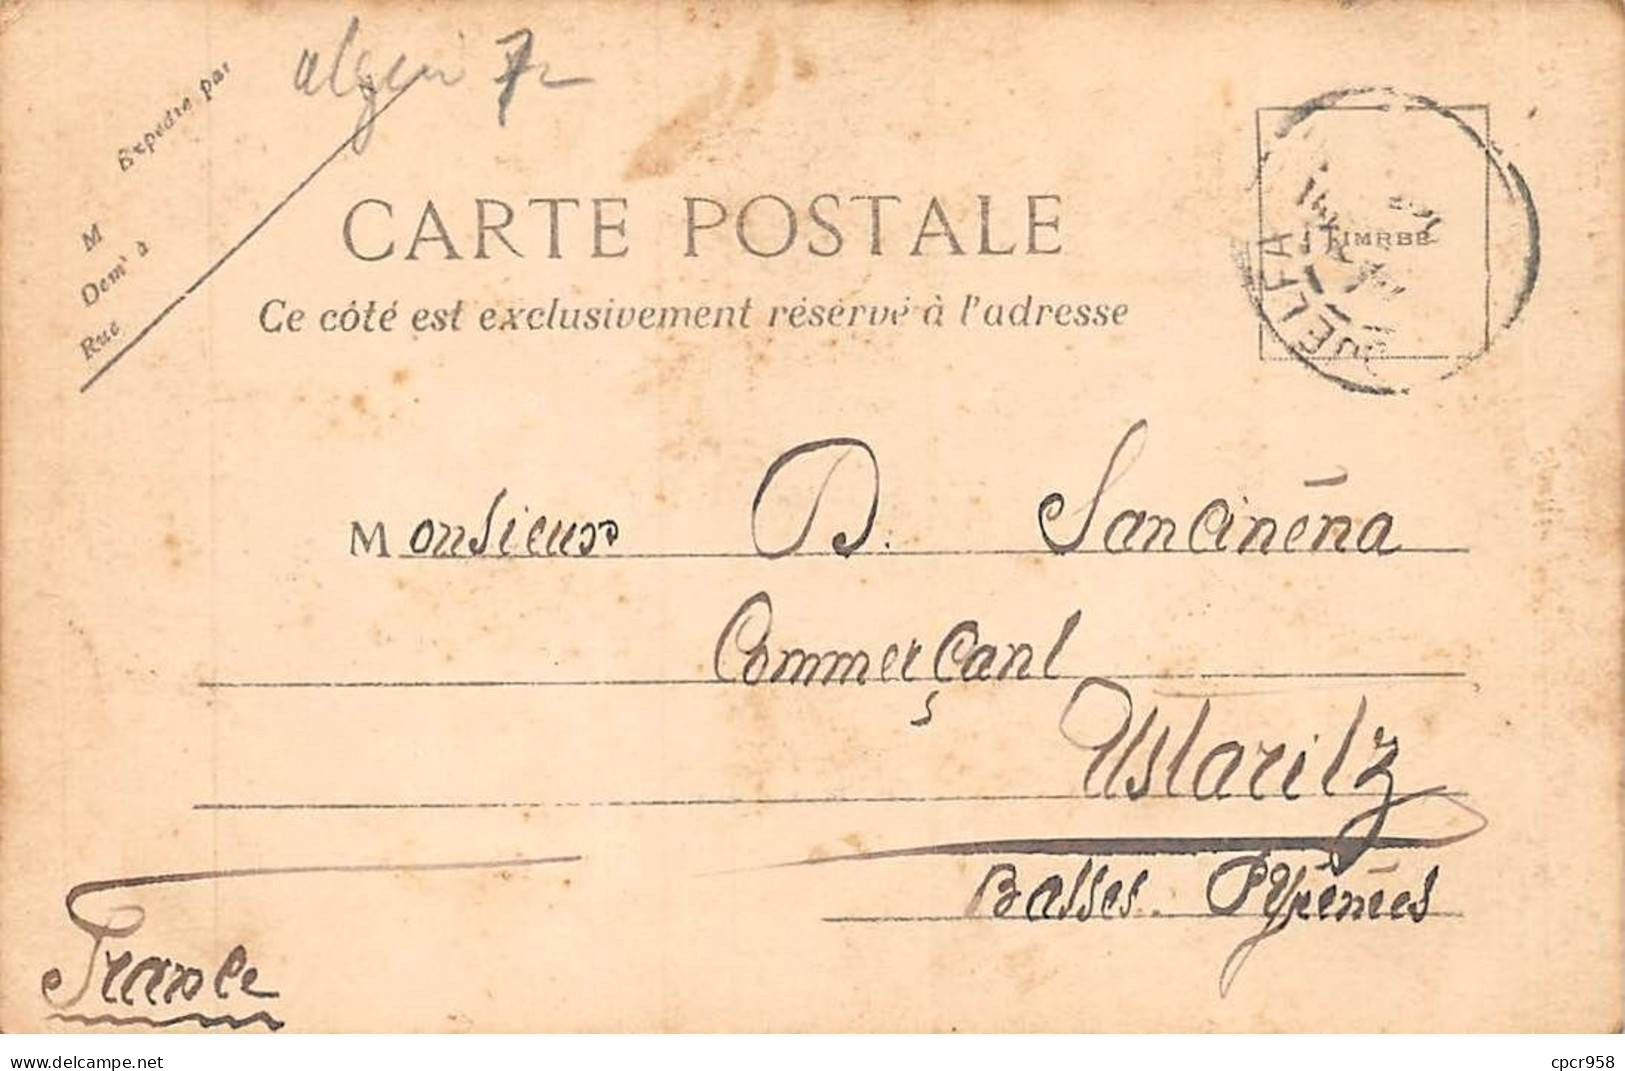 alger 7
Expédié par
M
Dem^t à
Rue
CARTE POSTALE
Ce côté est exclusivement réservé à l'adresse
TIMBRE
DJELFA
Monsieur D. Sancinéna
Commerçant
Ustaritz
Basses-Pyrénées
France
www.delcampe.net
cpcr958